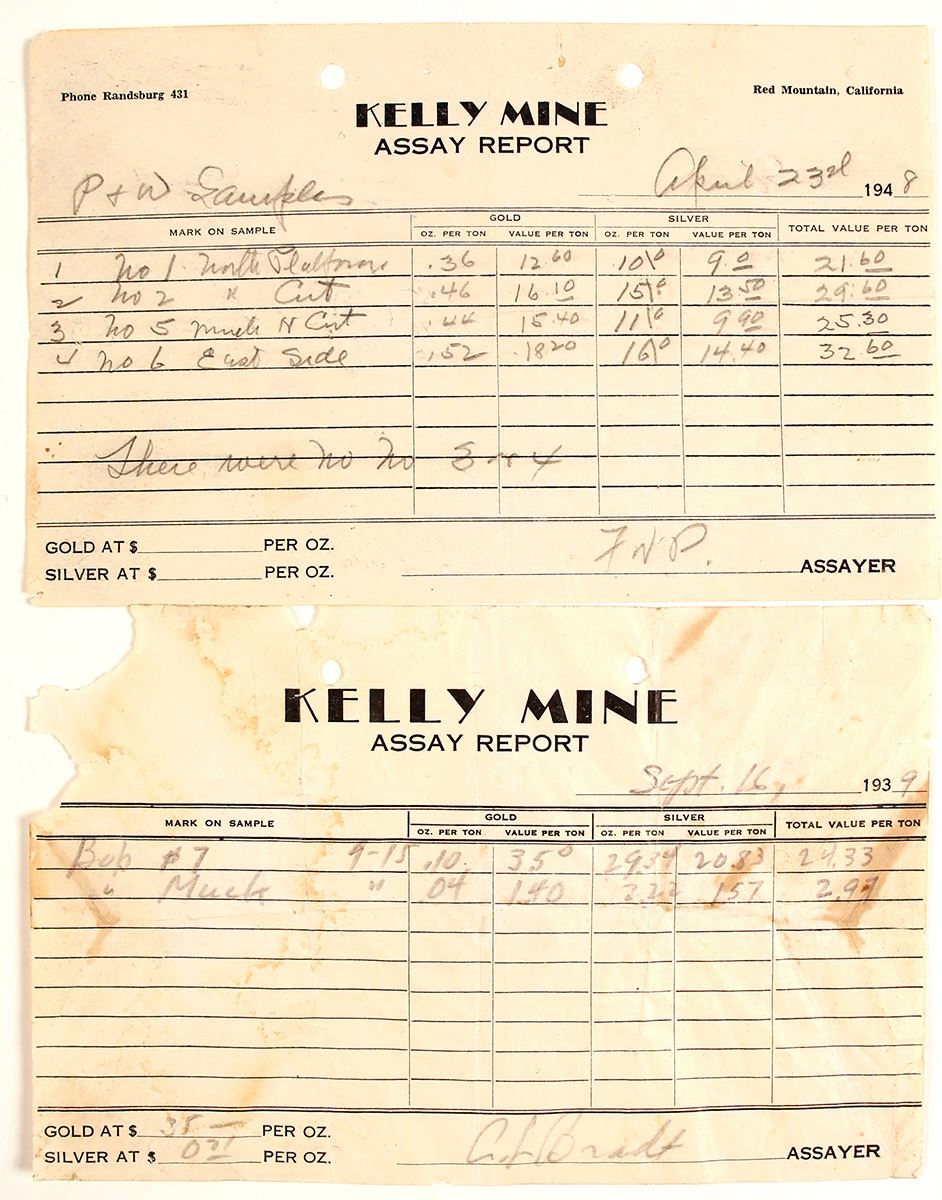 Phone Randsburg 431
Red Mountain, California
KELLY MINE
ASSAY REPORT
P + W Samples April 23rd 1948
MARK ON SAMPLE GOLD SILVER TOTAL VALUE PER TON
OZ. PER TON VALUE PER TON OZ. PER TON VALUE PER TON
1 No 1 North Platform .36 12.60 10.0 9.0 21.60
2 No 2 " Cut .46 16.10 15.0 13.50 29.60
3 No 5 muck N Cut .44 15.40 11.0 9.90 25.30
4 No 6 East Side .52 18.20 16.0 14.40 32.60
There were no No 3 or 4
GOLD AT $ PER OZ.
SILVER AT $ PER OZ.
F N P. ASSAYER
KELLY MINE
ASSAY REPORT
Sept. 16, 1939
MARK ON SAMPLE GOLD SILVER TOTAL VALUE PER TON
OZ. PER TON VALUE PER TON OZ. PER TON VALUE PER TON
#7 9-15 .10 3.50 29.34 20.83 24.33
" Muck " 04 140 2.22 157 2.97
GOLD AT $ 35 — PER OZ.
SILVER AT $ 0.71 PER OZ.
Bradt ASSAYER